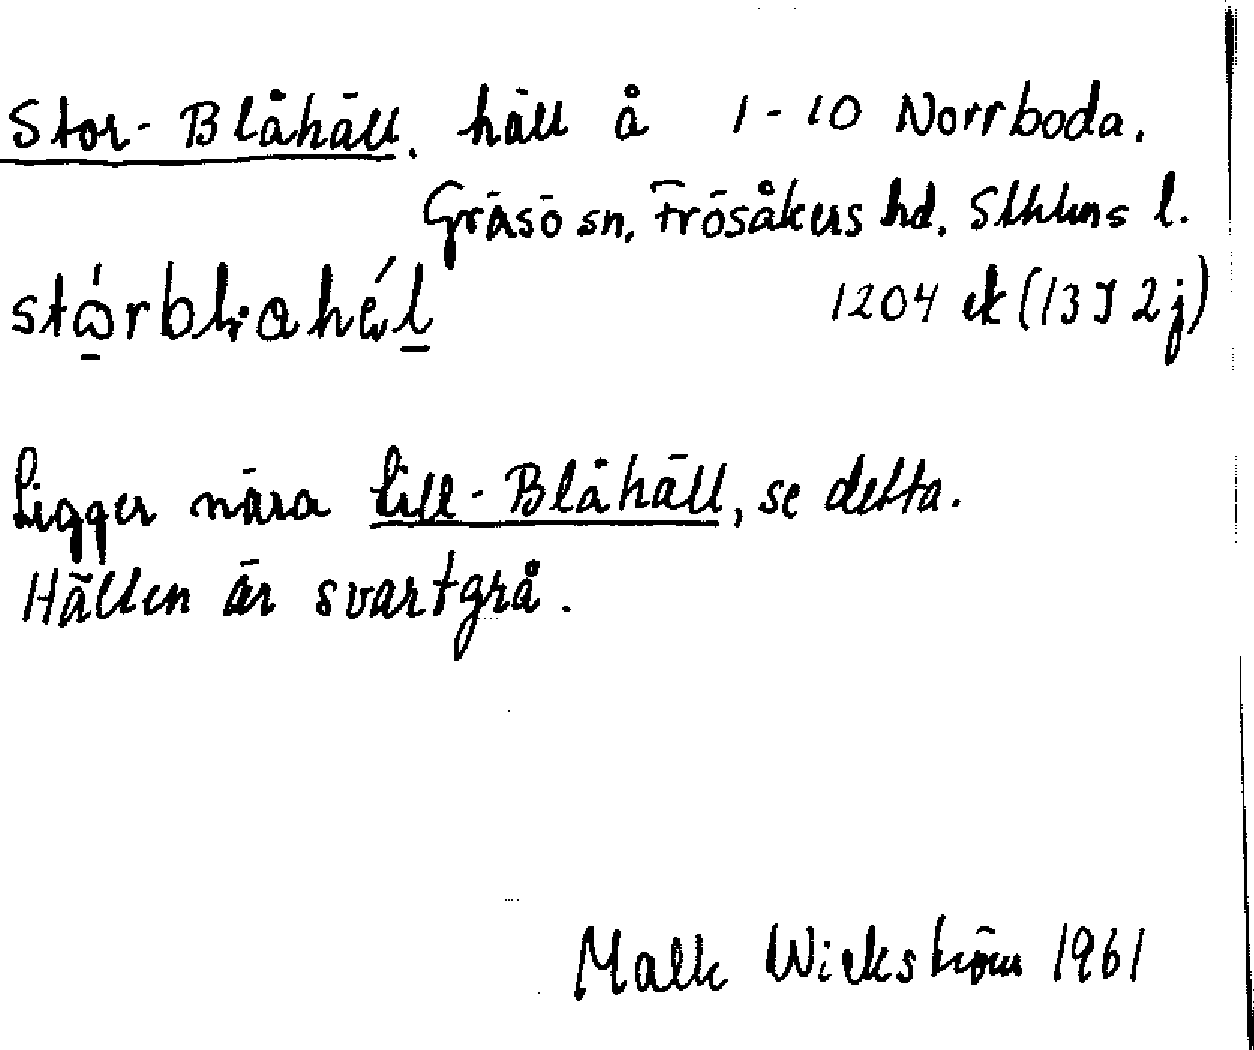 Stor-Blåhäll. häll å 1-10 Norrboda.
Gräsö sn, Frösåkers hd. Sthlms l.
1204 ek (13J 2j)
Ligger nära Lill-Blåhäll, se detta.
Hällen är svartgrå.
Wickström 1961